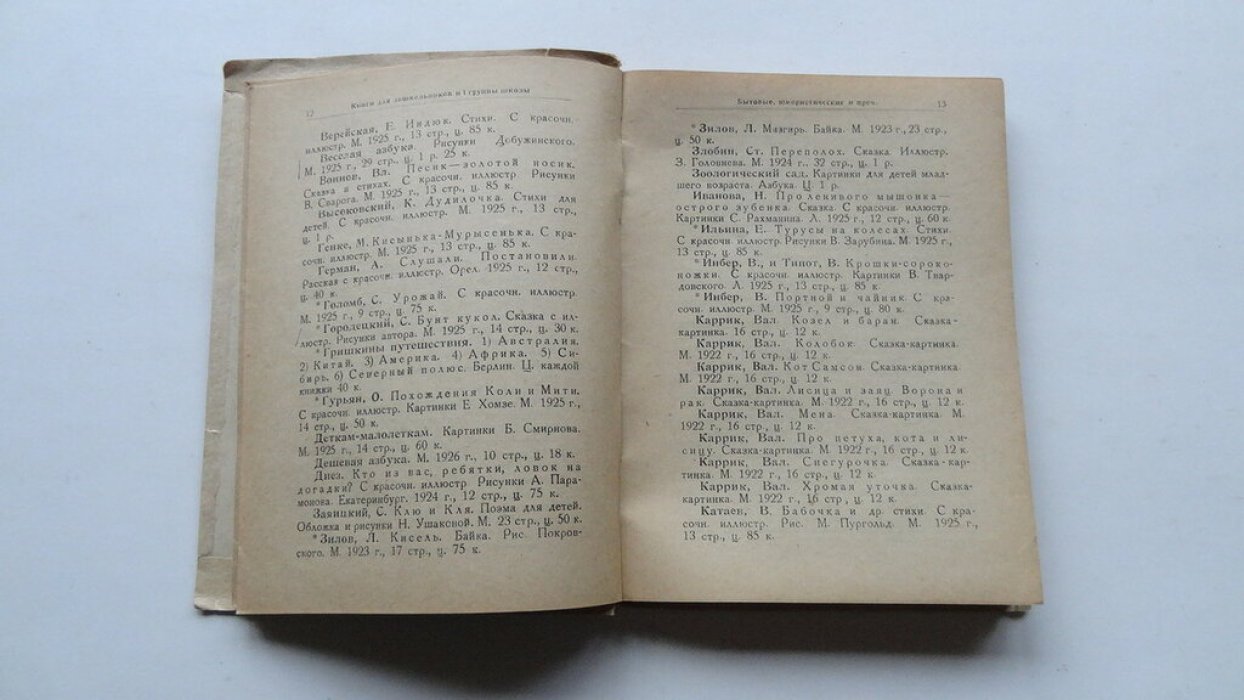 12 Книги для дошкольников и I группы школы
Верейская, Е. Индюк. Стихи. С красочн.
иллюстр. М. 1925 г., 13 стр., ц. 85 к.
Веселая азбука. Рисунки Добужинского.
М. 1925 г., 29 стр., ц. 1 р. 25 к.
Воинов, Вл. Песик—золотой носик.
Сказка в стихах. С красочн. иллюстр Рисунки
В. Сварога. М. 1925 г., 13 стр., ц. 85 к.
Высоковский, К. Дудилочка. Стихи для
детей. С красочн. иллюстр. М. 1925 г., 13 стр.,
ц. 1 р.
Генке, М. Кисынька-Мурысенька. С кра-
сочн. иллюстр. М. 1925 г., 13 стр., ц. 85 к.
Герман, А. Слушали. Постановили.
Рассказ с красочн. иллюстр. Орел. 1925 г., 12 стр.,
ц. 40 к.
*Голомб, С. Урожай. С красочн. иллюстр.
М. 1925 г., 9 стр., ц. 75 к.
*Городецкий, С. Бунт кукол. Сказка с ил-
люстр. Рисунки автора. М. 1925 г., 14 стр., ц. 30 к.
*Гришкины путешествия. 1) Австралия.
2) Китай. 3) Америка. 4) Африка. 5) Си-
бирь. 6) Северный полюс. Берлин. Ц. каждой
книжки 40 к.
*Гурьян, О. Похождения Коли и Мити.
С красочн. иллюстр. Картинки Е Хомзе. М. 1925 г.,
14 стр., ц. 50 к.
Деткам-малолеткам. Картинки Б. Смирнова.
М. 1925 г., 14 стр., ц. 60 к.
Дешевая азбука. М. 1926 г., 10 стр., ц. 18 к.
Диез. Кто из вас, ребятки, ловок на
догадки? С красочн. иллюстр Рисунки А. Пара-
монова. Екатеринбург. 1924 г., 12 стр., ц. 75 к.
Заяицкий, С. Клю и Кля. Поэма для детей.
Обложка и рисунки Н. Ушаковой. М. 23 стр., ц. 50 к.
*Зилов, Л. Кисель. Байка. Рис. Покров-
ского. М. 1923 г., 17 стр., ц. 75 к.
Бытовые, юмористические и проч. 13
*Зилов, Л. Мазгирь. Байка. М. 1923 г., 23 стр.,
ц. 50 к.
Злобин, Ст. Переполох. Сказка. Иллюстр.
З. Головнева. М. 1924 г.. 32 стр., ц. 1 р.
Зоологический сад. Картинки для детей млад
шего возраста. Азбука. Ц 1 р.
Иванова, Н. Про ленивого мышонка—
острого зубенка. Сказка. С красочн. иллюстр.
Картинки С. Рахманина. Л. 1925 г., 12 стр., ц. 60 к.
*Ильина, Е. Турусы на колесах. Стихи.
С красочн. иллюстр. Рисунки В. Зарубина. М. 1925 г.,
13 стр., ц. 85 к.
*Инбер, В., и Типот, В. Крошки-сороко-
ножки. С красочн. иллюстр. Картинки В. Твар-
довского. Л. 1925 г., 13 стр., ц. 85 к.
*Инбер, В. Портной и чайник. С кра-
сочн. иллюстр. М. 1925 г., 9 стр., ц. 80 к.
Каррик, Вал. Козел и баран. Сказка-
картинка. 16 стр., ц. 12 к.
Каррик, Вал. Колобок. Сказка-картинка.
М. 1922 г., 16 стр., ц. 12 к.
Каррик, Вал. Кот Самсон. Сказка-картинка.
М. 1922 г., 16 стр., ц. 12 к.
Каррик, Вал. Лисица и заяц. Ворона и
рак. Сказка-картинка. М. 1922 г., 16 стр., ц. 12 к.
Каррик, Вал. Мена. Сказка-картинка. М.
1922 г., 16 стр., ц. 12 к.
Каррик, Вал. Про петуха, кота и ли-
сицу. Сказка-картинка. М. 1922 г., 16 стр., ц. 12 к.
Каррик, Вал. Снегурочка. Сказка-кар-
тинка. М. 1922 г., 16 стр., ц. 12 к.
Каррик, Вал. Хромая уточка. Сказка-
картинка. М. 1922 г., 16 стр., ц. 12 к.
Катаев, В. Бабочка и др. стихи. С кра-
сочн. иллюстр. Рис. М. Пургольд. М. 1925 г.,
13 стр., ц. 85 к.